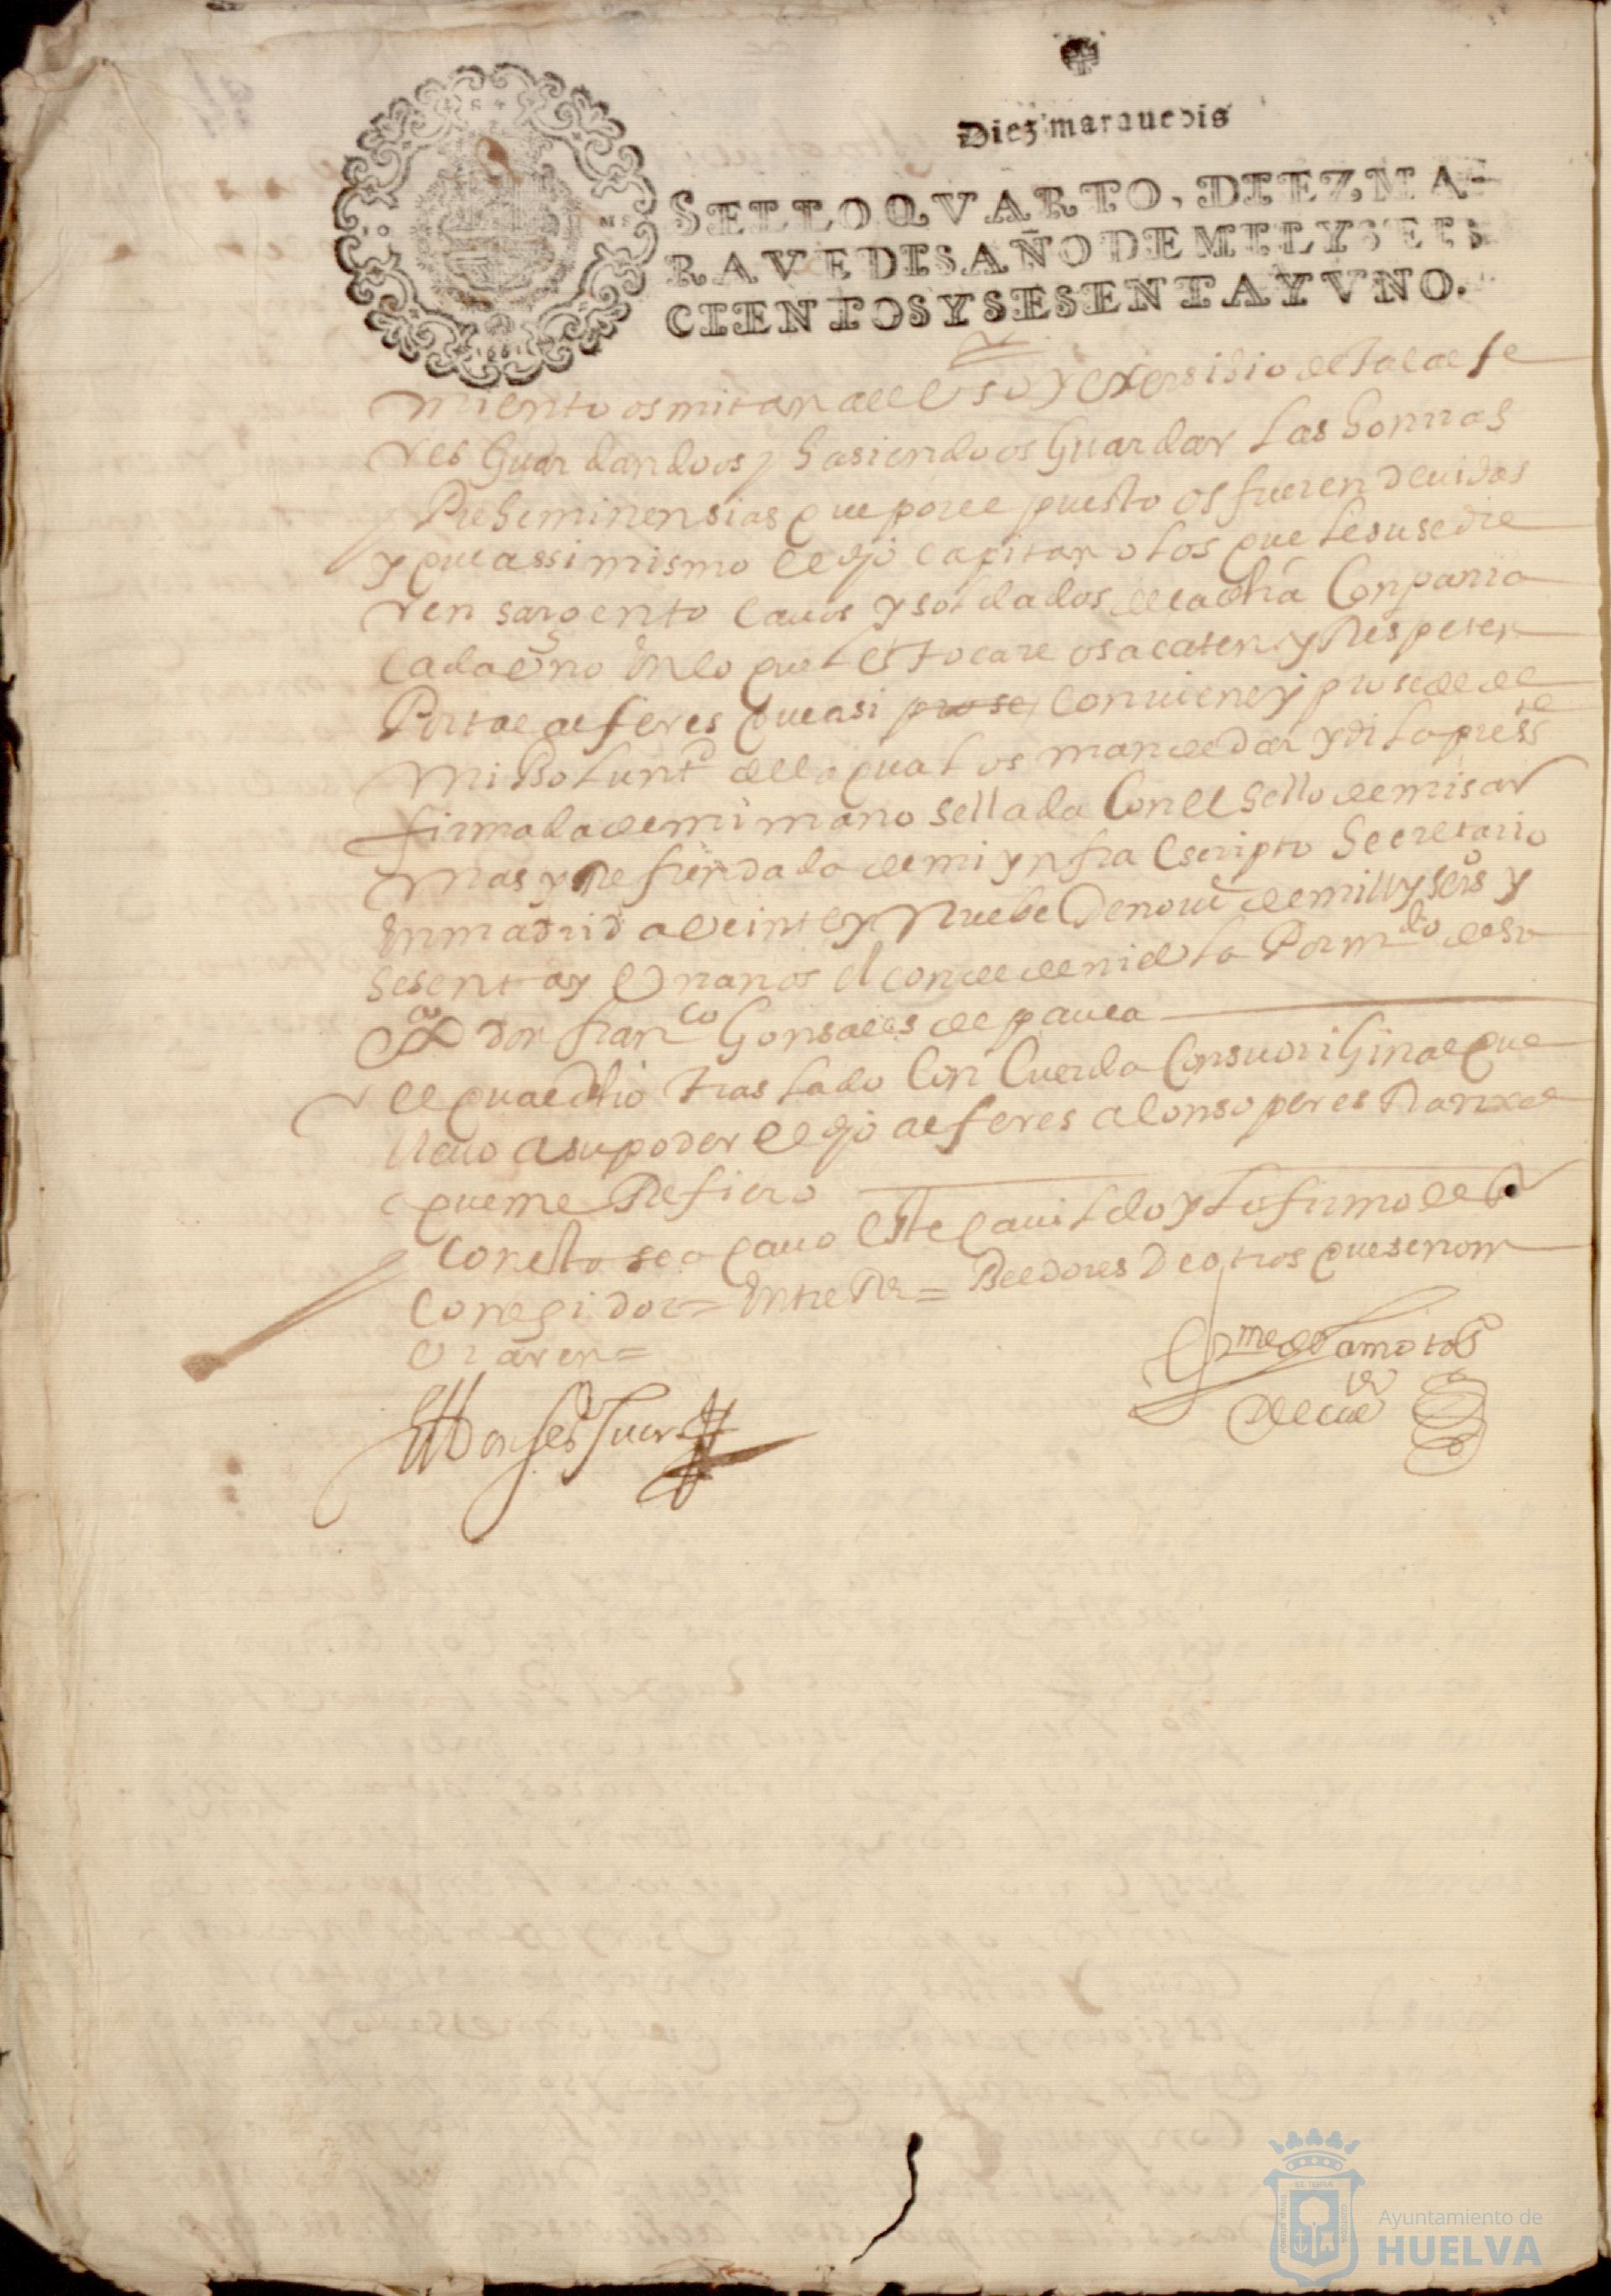 Diez marauedis
SELLO QVARTO, DIEZ MA-
RAVEDIS AÑO DE MIL Y SEIS
CIENTOS Y SESENTA Y VNO.
miento os mitan del uso y exersisio de tal alfe
res Guardandoos y hasiendoos Guardar las honrras
Preheminensias que por el puesto os fueren deuidas
y que assi mismo el djo capitan o los que le susedie
ren sargento cauos y soldados de la dha Conpania
Cada uno en lo que les tocare os acaten y Respeten
Por tal alferes que asi prose conuiene y prosede de
mi Boluntd de lo qual os mande dar y di la presste
firmada de mi mano sellada Con el sello de mis ar
mas y Refrendada de mi ynfraescripto Secretario
En madrid a veinte y Nuebe De nouie de mill y seisos y
sesenta y un anos el conde de niebla Por mdo de su
exa don franco Gonsales de pauea
el qual dho traslado Con Cuerda Con su original que
lleuo a su poder el djo alferes alonso peres Ranxel
a que me Refiero
Con esto se acauo este cauildo y lo firmo el
Corregidor = Entre Rs = Beedores De otros que se nom
braren =
De cudo
Ayuntamiento de
HUELVA